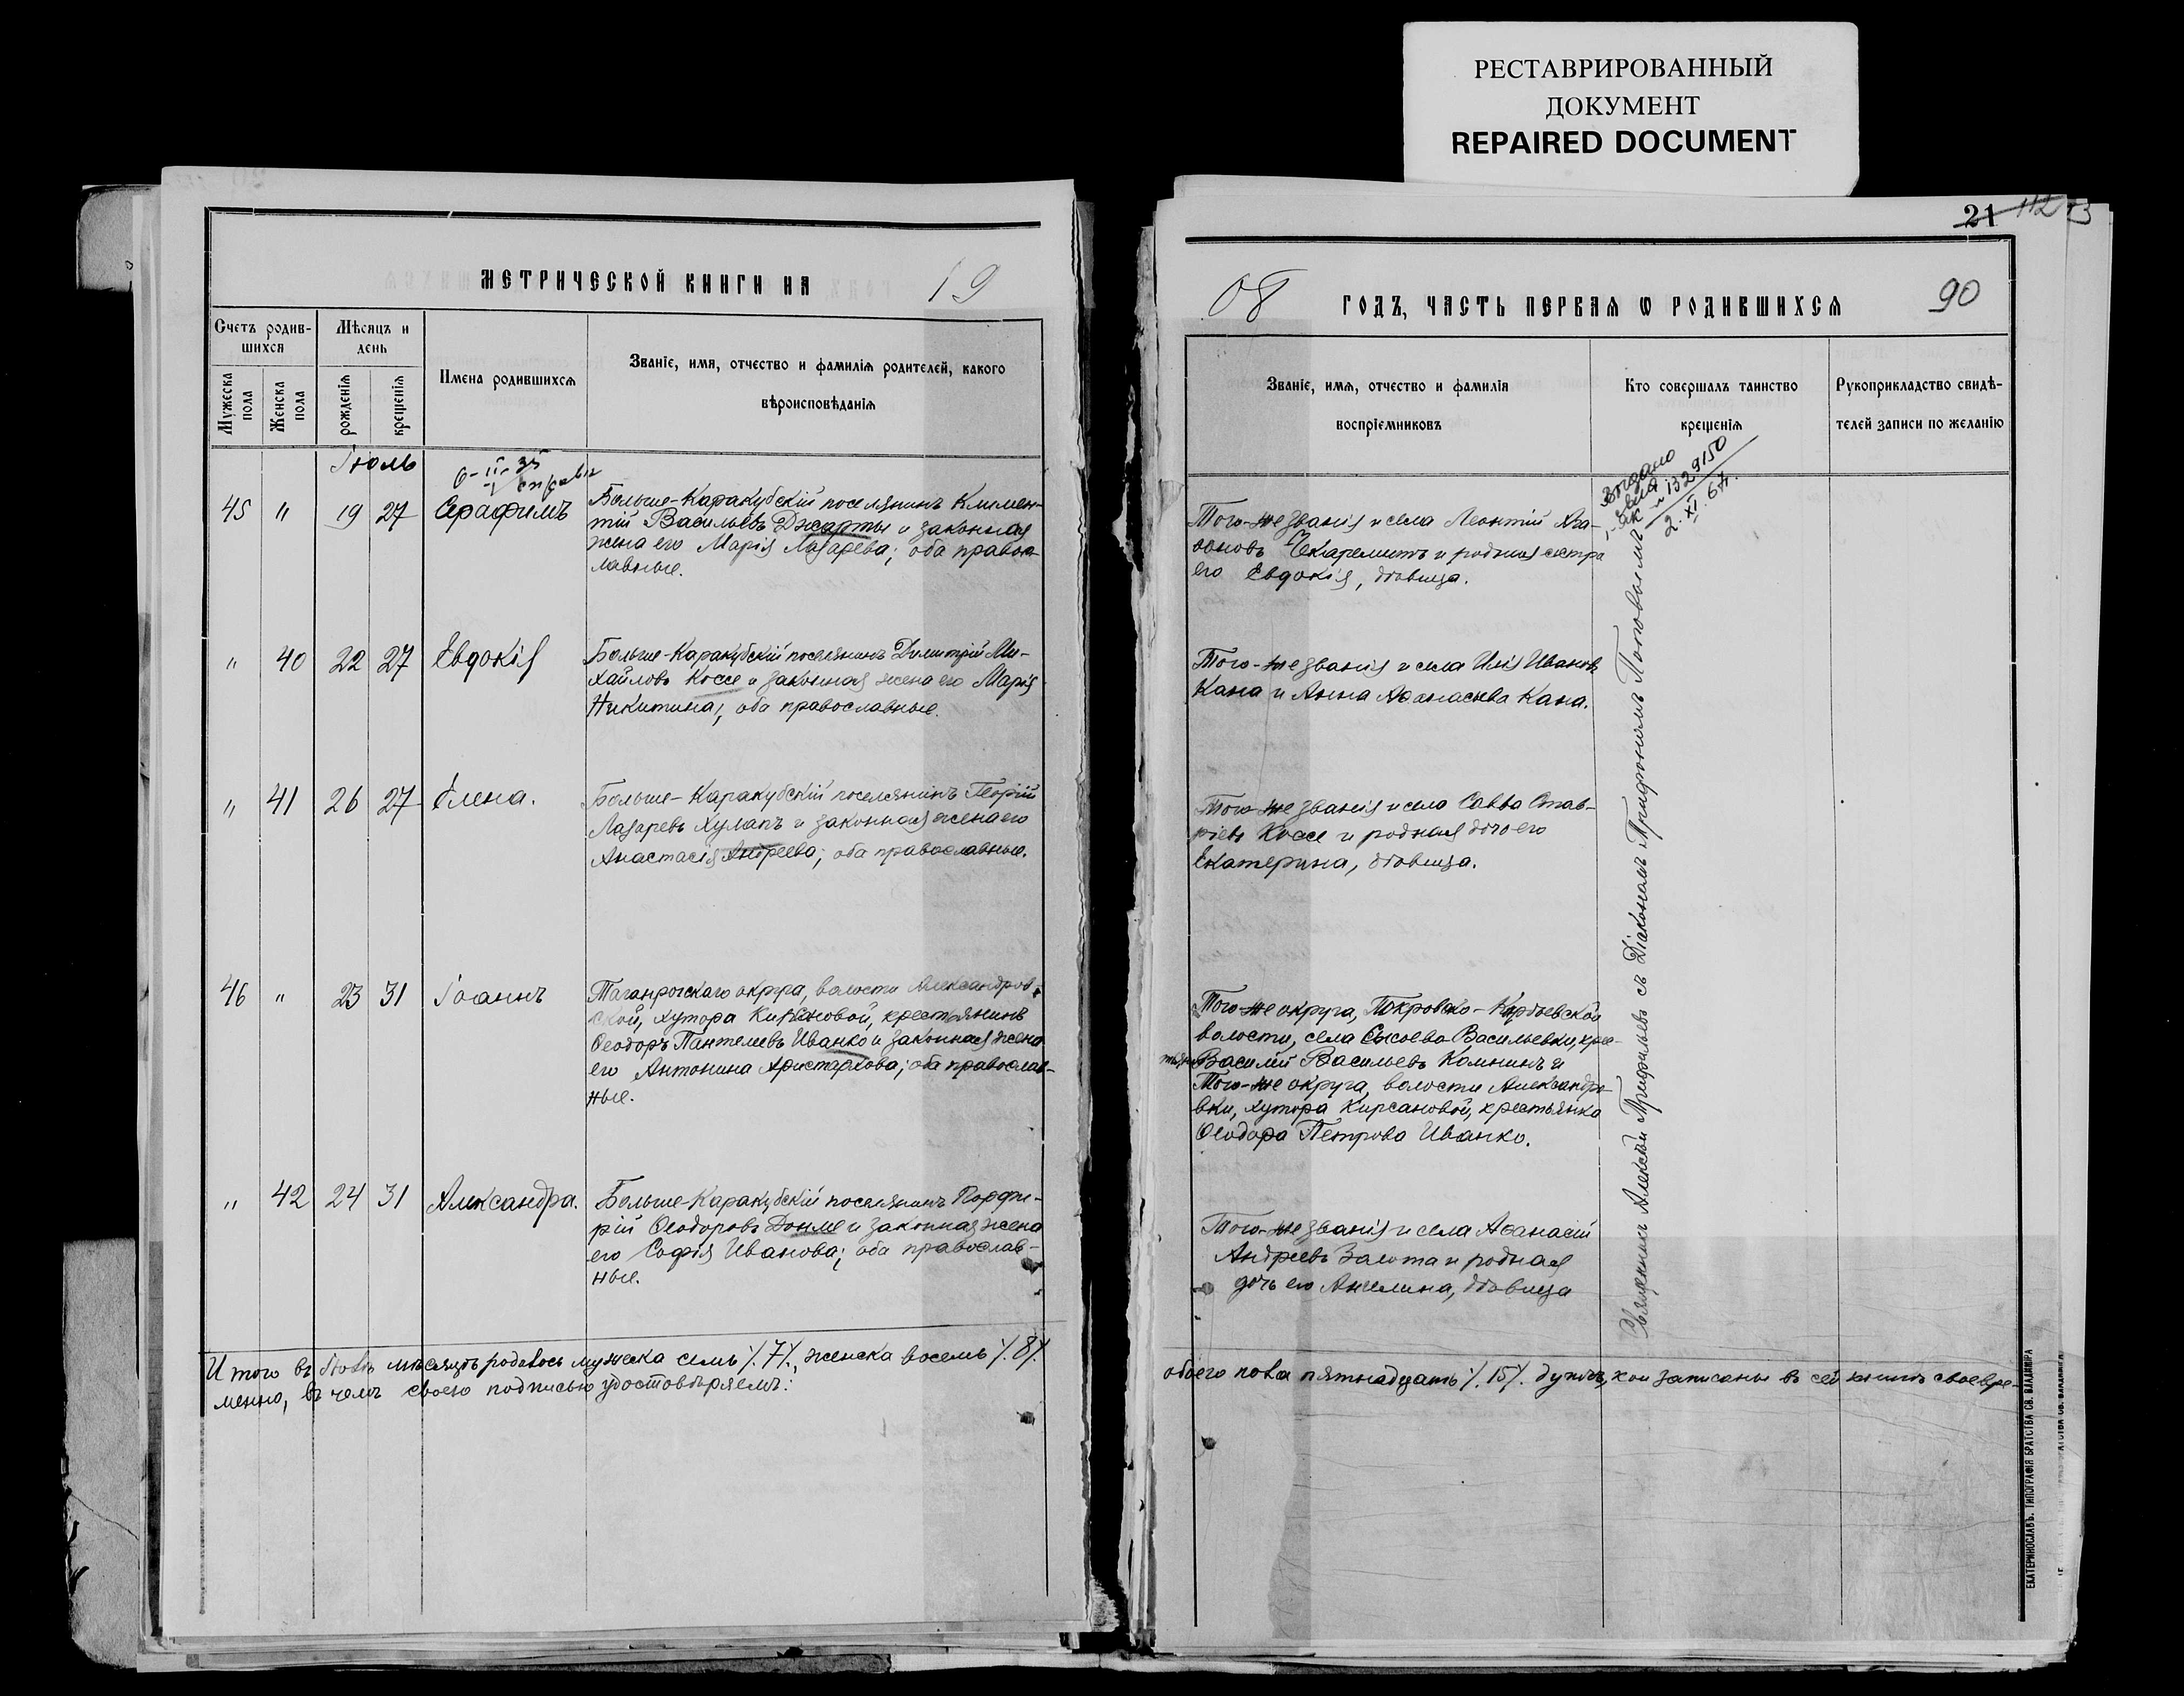 РЕСТАВРИРОВАННЫЙ
ДОКУМЕНТ
REPAIRED DOCUMENT
МЕТРИЧЕСКОЙ КНИГИ НА 19
Счетъ родив-
шихся
Мѣсяцъ и
день
Имена родившихся
Званіе, имя, отчество и фамилія родителей, какого
вѣроисповѣданія
Мужеска
пола
Женска
пола
рожденія
крещенія
Іюль
45 " 19 27 Серафимъ
Больше-Каракубскій поселянинъ Климен-
тій Васильевъ Джарты и законная
жена его Марія Лазарева; оба правос-
лавные.
" 40 22 27 Евдокія
Больше-Каракубскій поселянинъ Димитрій Ми-
хайловъ Коссе и законная жена его Марія
Никитина, оба православные.
" 41 26 27 Елена.
Больше-Каракубскій поселянинъ Георгій
Лазаревъ Хулапъ и законная жена его
Анастасія Андреева; оба православные.
46 " 23 31 Іоаннъ
Таганрогскаго округа, волости Александров-
ской, хутора Кирсановой, крестьянинъ
Ѳеодоръ Пантелеевъ Иванко и законная жена
его Антонина Христархова; оба православ-
ные.
" 42 24 31 Александра.
Больше-Каракубскій поселянинъ Порфи-
рій Ѳеодоровъ Донме и законная жена
его Софія Иванова; оба православ-
ные.
Итого въ Іюлѣ мѣсяцѣ родилось мужеска семь /.7/., женска восемь /.8/.
менно, въ чемъ своею подписью удостовѣряемъ:
21 112
08 ГОДЪ, ЧАСТЬ ПЕРВАЯ Ѡ РОДИВШИХСЯ 90
Званіе, имя, отчество и фамилія
воспріемниковъ
Кто совершалъ таинство
крещенія
Рукоприкладство свидѣ-
телей записи по желанію
выдано
1329150
2.XI.64.
Того-же званія и села Леонтій
Чекаремитъ и родная сестра
его Евдокія, дѣвица.
Того-же званія и села Илія Ивановъ
Кана и Анна Аѳанасьева Кана.
Того-же званія и села Савва Став-
ріевъ Коссе и родная дочь его
Екатерина, дѣвица.
Того-же округа, Покровско-Кирѣевской
волости, села Сысоево-Васильевки, кре-
Василій Васильевъ Калининъ и
Того-же округа, волости Александро-
вки, хутора Кирсановой, крестьянка
Ѳеодора Петрова Иванко.
Того-же званія и села Аѳанасій
Андреевъ Залота и родная
дочь его Ангелина, дѣвица
Священникъ Алексѣй Трифильевъ съ Діакономъ Трифономъ
обоего пола пятнадцать /.15/. душъ, кои записаны въ сей книгѣ своевре-
ЕКАТЕРИНОСЛАВЪ. ТИПОГРАФІЯ БРАТСТВА СВ. ВЛАДИМІРА